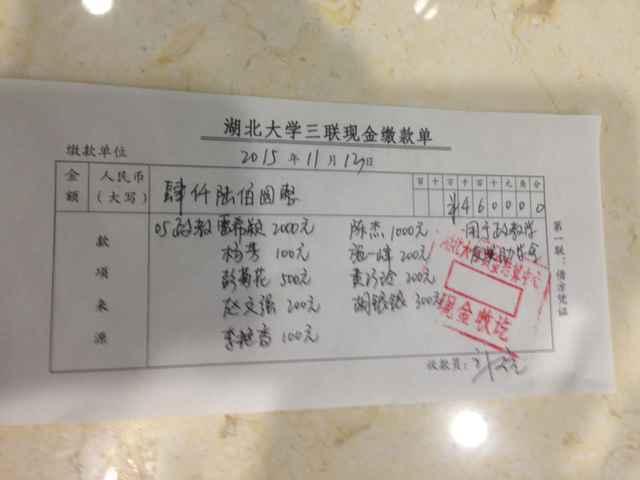 湖北大学三联现金缴款单
缴款单位
2015 年 11 月 12 日
金额 人民币（大写） 肆仟陆佰圆整
百 十 万 千 百 十 元 角 分
¥ 4 6 0 0 0 0
款项来源
05政教 2000元 陈杰 1000元 用于政教学
杨芳 100元 200元
彭菊花 500元 200元
赵文强 200元 胡银银 300元
100元
现金缴讫
第一联：借方凭证
收款员：